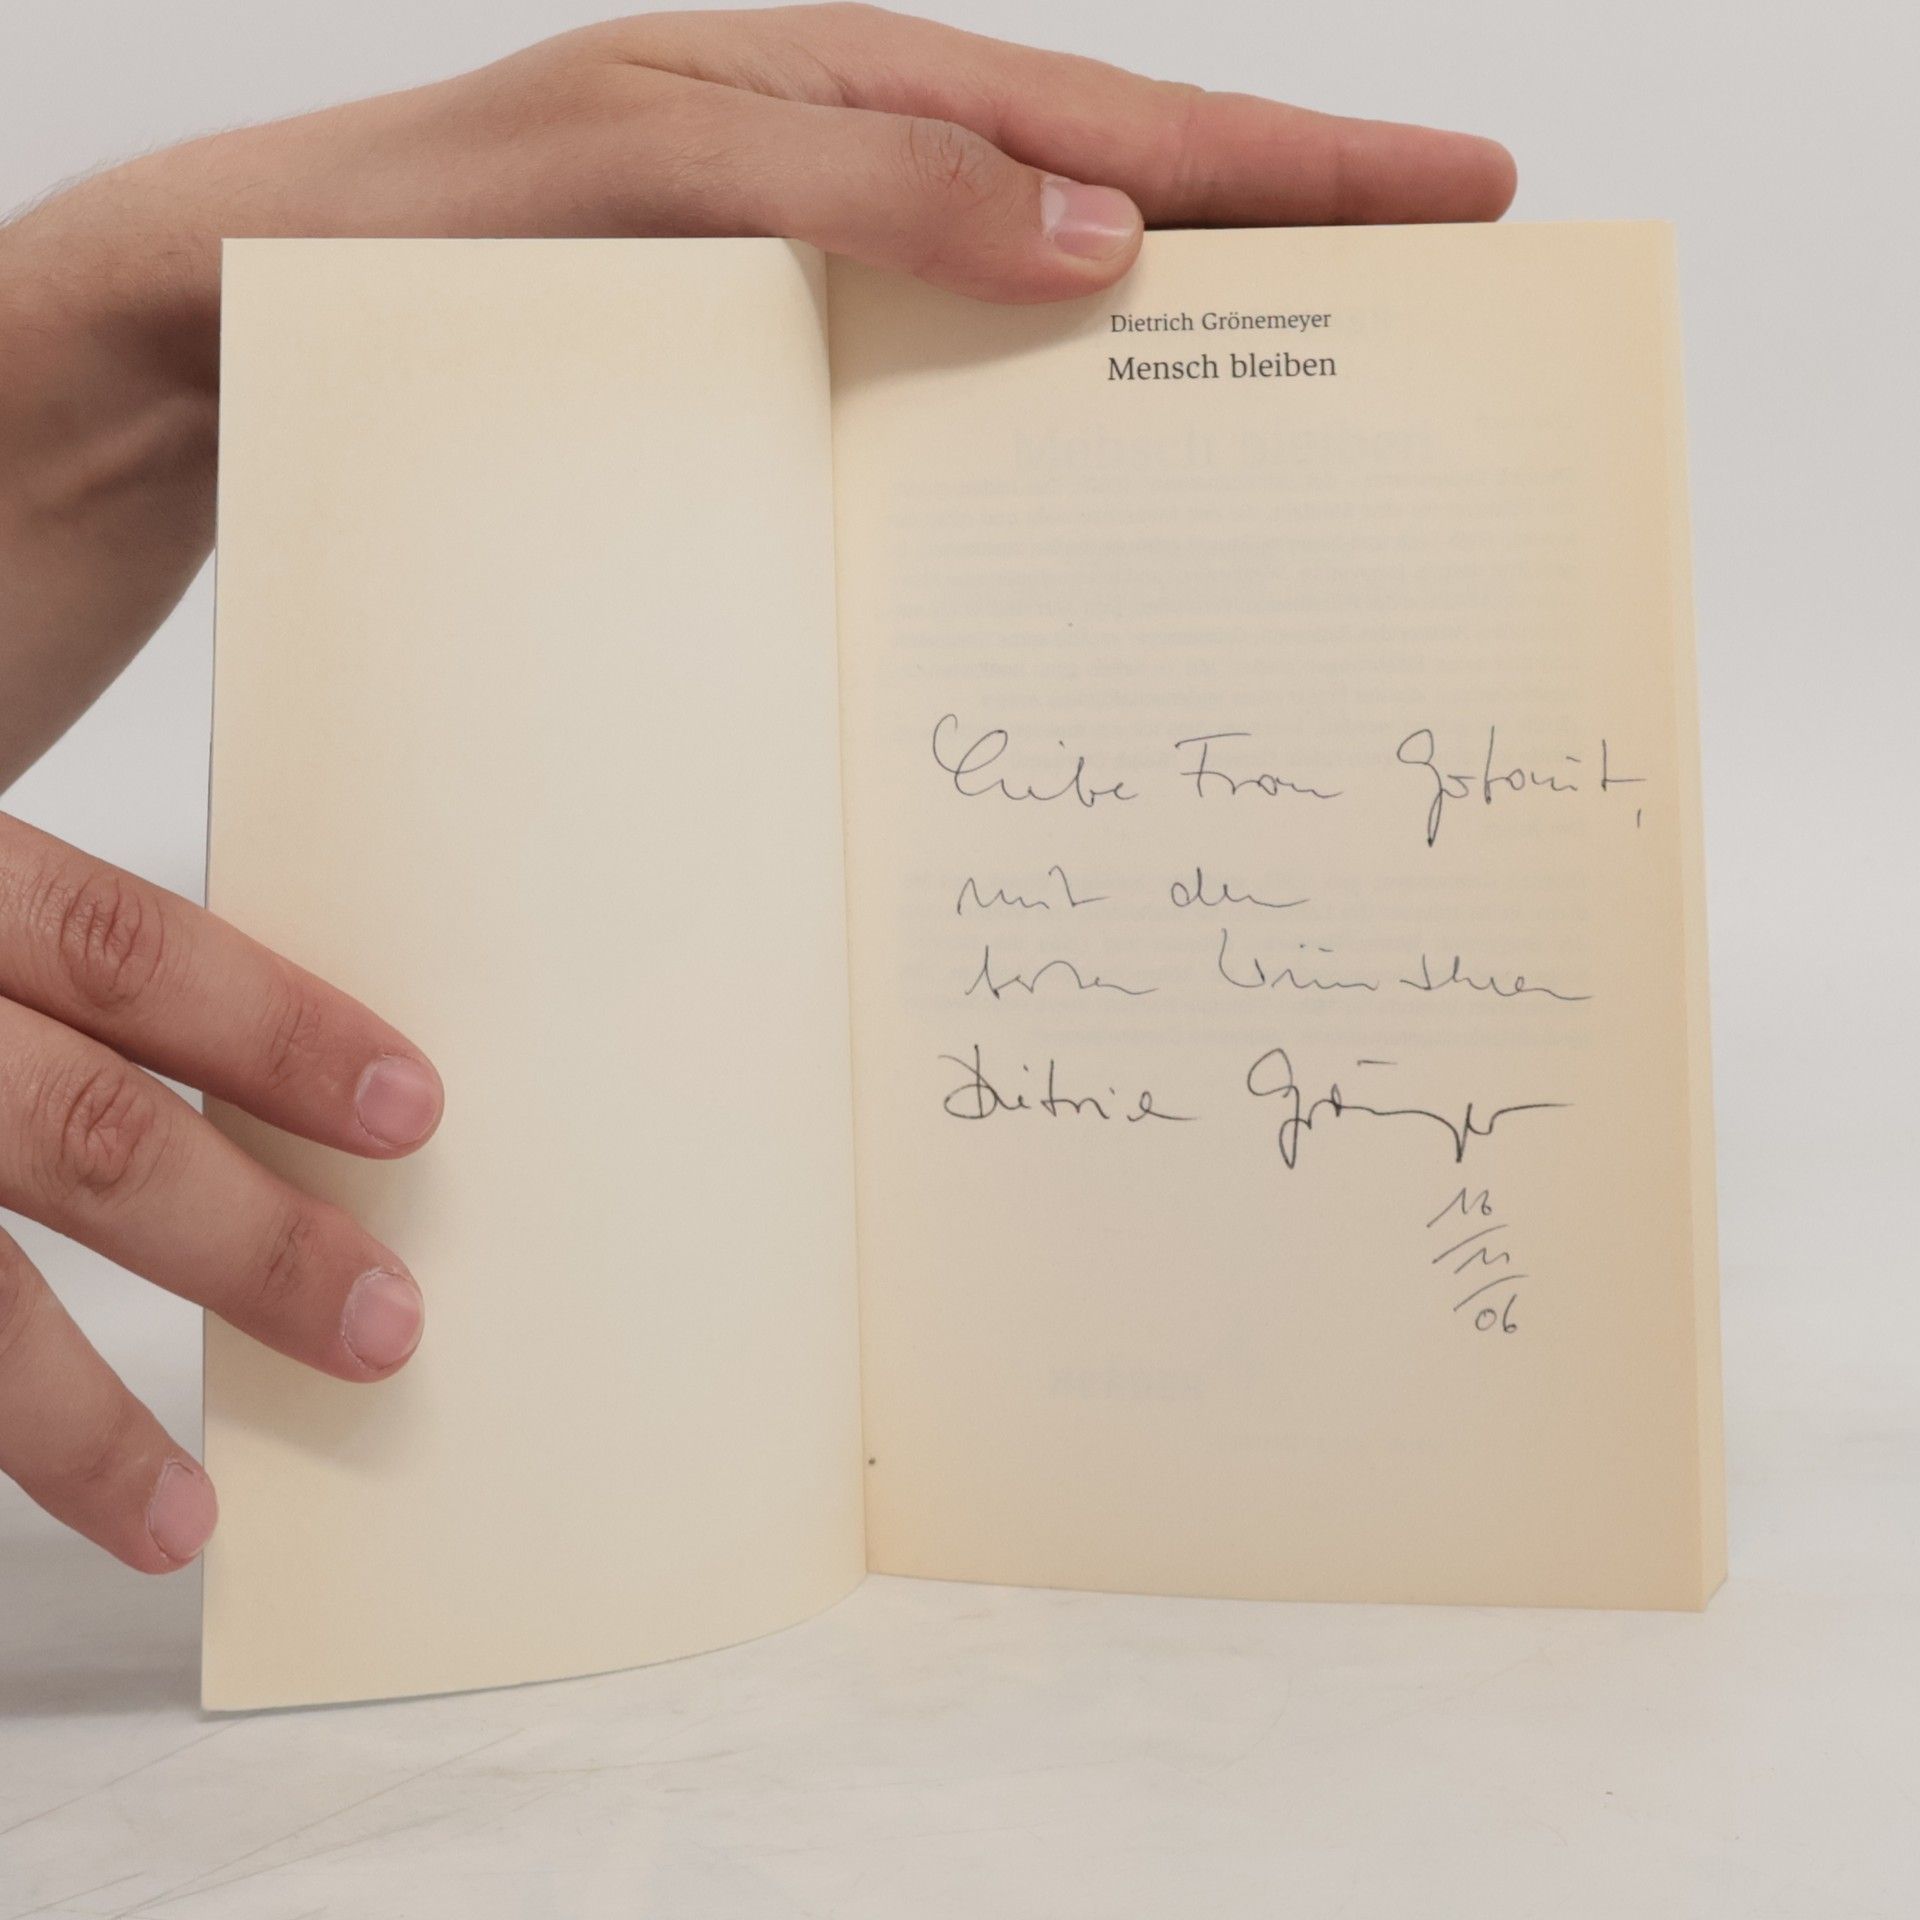 Dietrich Grönemeyer
Mensch bleiben
Liebe Frau
mit den
besten Wünschen
Dietrich Grönemeyer
16
11
06